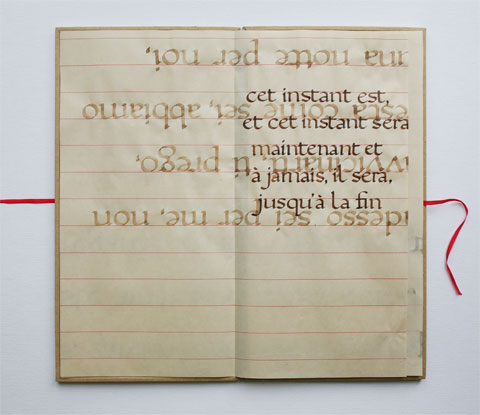 cet instant est,
et cet instant sera
maintenant et
à jamais, il sera,
jusqu'à la fin
adesso sei per me, non
ti prego,
come sei, abbiamo
una notte per noi,